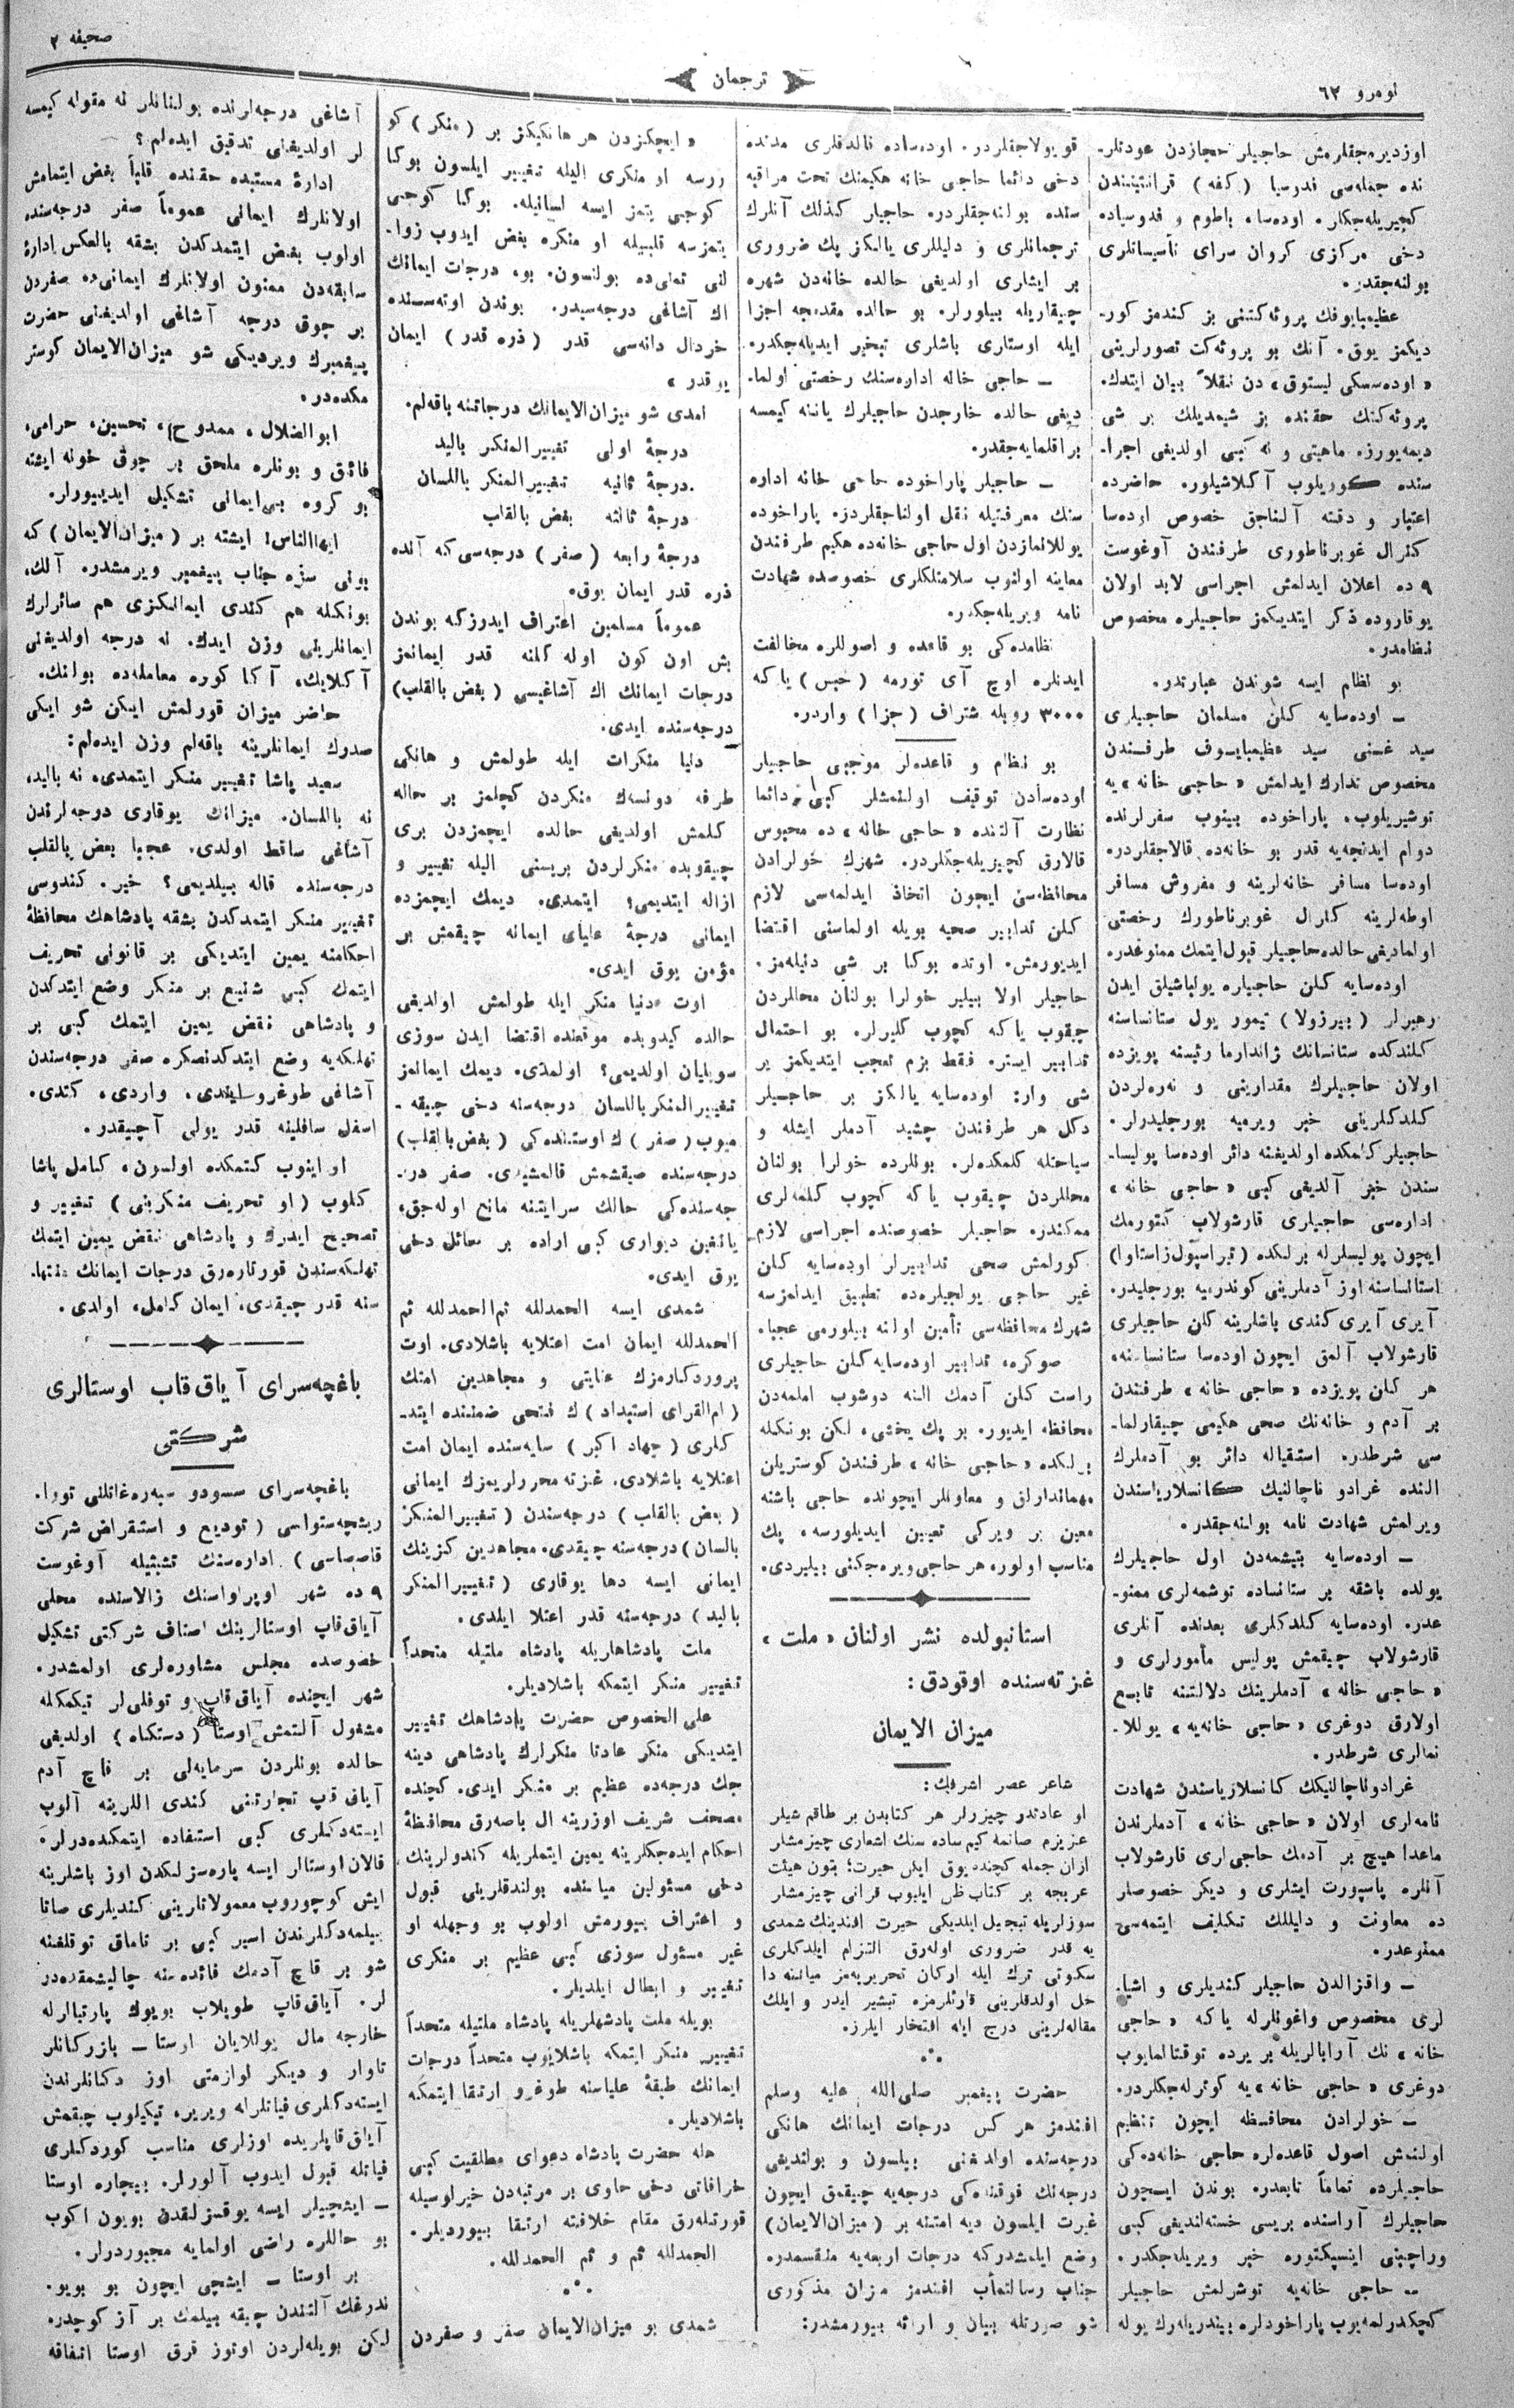 نومرو ٦٢
ترجمان
صحیفه ٢
اوزدیره‌جقلرمش حاجیلر حجازدن عودتلر-
نده جمله‌سی فدوسیا (کفه) قرانتینندن
کچیریله‌جکلر. اوده‌سا، باطوم و فدوسیاده
دخی مرکزی کروان سرای تأسیساتلری
بولنه‌جقدر.
عظیمبایوفك پروئه‌کتنی بز کندمز کور-
دیکمز یوق. آنك بو پروئه‌کت تصورلرینی
«اوده‌سسکی لیستوق» دن نقلاً بیان ایتدك.
پروئه‌کتك حقنده بز شیمدیلك بر شی
دیمه‌یورز. ماهیتی و نه کبی اولدیغی اجرا-
سنده کوریلوب آکلاشیلور. حاضرده
اعتبار و دقته آلناجق خصوص اوده‌سا
گنرال غوبرناطوری طرفندن آوغوست
٩ ده اعلان ایدلمش اجراسی لابد اولان
یوقاروده ذکر ایتدیکمز حاجیلره مخصوص
نظامدر.
بو نظام ایسه شوندن عبارتدر.
— اوده‌سایه کلن مسلمان حاجیلری
سید غنی سید عظیمبایوف طرفندن
مخصوص تدارك ایدلمش «حاجی خانه» یه
توشیریلوب، پاراخوده بینوب سفرلرنده
دوام ایدنجه‌یه قدر بو خانه‌ده قالاجقلردر.
اوده‌سا مسافر خانه‌لرینه و مفروش مسافر
اوطه‌لرینه گنرال غوبرناطورك رخصتی
اولمادیغی حالده حاجیلر قبول ایتمك ممنوعدر.
اوده‌سایه کلن حاجیلره یولباشیلق ایدن
رهبرلر (بیرزولا) تیمور یول ستانساسنه
کلندکده ستانسانك ژاندارما رئیسنه پویزده
اولان حاجیلرك مقدارینی و نه‌ره‌لردن
کلدکلرینی خبر ویرمیه بورجلیدرلر.
حاجیلر کلمکده اولدیغنه دائر اوده‌سا پولیسا-
سندن خبر آلدیغی کبی «حاجی خانه»
اداره‌سی حاجیلری قارشولاب کتورمك
ایچون پولیسلرله برلکده (تیراسپول زاستاوا)
استانساسنه اوز آدملرینی کوندرمیه بورجلیدر.
آیری آیری کندی باشلرینه کلن حاجیلری
قارشولاب آلمق ایچون اوده‌سا ستانساسنه،
هر کلن پویزده «حاجی خانه» طرفندن
بر آدم و خانه‌نك صحی هکیمی چیقارلما-
سی شرطدر. استقباله دائر بو آدملرك
النده غرادو ناچالنیك کانسلاریاسندن
ویرلمش شهادت نامه بولنه‌جقدر.
— اوده‌سایه یتیشمه‌دن اول حاجیلرك
یولده باشقه بر ستانساده توشمه‌لری ممنو-
عدر. اوده‌سایه کلدکلری بعدنده آنلری
قارشولاب چیقمش پولیس مأمورلری و
«حاجی خانه» آدملرینك دلالتنه تابع
اولارق دوغری «حاجی خانه‌یه» یوللا-
نمالری شرطدر.
غرادوناچالنیکك کانسلاریاسندن شهادت
نامه‌لری اولان «حاجی خانه» آدملرندن
ماعدا هیچ بر آدمك حاجیلری قارشولاب
آنلره پاسپورت ایشلری و دیکر خصوصلر
ده معاونت و دلیللك تکلیف ایتمه‌سی
ممنوعدر.
— واقزالدن حاجیلر کندیلری و اشیا-
لری مخصوص واغونلرله یاکه «حاجی
خانه» نك آرابالریله بر یرده توقتالمایوب
دوغری «حاجی خانه» یه کوترله‌جکلردر.
— خولرادن محافظه ایچون تنظیم
اولنمش اصول قاعده‌لره حاجی خانه‌ده‌کی
حاجیلرده تماماً تابعدر. بوندن ایچون
حاجیلرك آراسنده بریسی خسته‌لندیغی کبی
وراچبنی اینسپکتوره خبر ویریله‌جکدر.
— حاجی خانه‌یه توشرلمش حاجیلر
کچکدرلمه‌یوب پاراخودلره بیندریله‌رك یوله
قویولاجقلردر. اوده‌ساده قالدقلری مدتده
دخی دائما حاجی خانه هکیمنك تحت مراقبه
سنده بولنه‌جقلردر. حاجیلر کذلك آنلرك
ترجمانلری و دلیللری یالکز پك ضروری
بر ایشلری اولدیغی حالده خانه‌دن شهره
چیقاریله بیلورلر. بو حالده مقدمجه اجزا
ایله اوستلری باشلری تبخیر ایدیله‌جکدر.
— حاجی خانه اداره‌سنك رخصتی اولما-
دیغی حالده خارجدن حاجیلرك یاننه کیمسه
براقلمایه‌جقدر.
— حاجیلر پاراخوده حاجی خانه اداره
سنك معرفتیله نقل اولناجقلردر. پاراخوده
یوللانمازدن اول حاجی خانه‌ده هکیم طرفندن
معاینه اولنوب سلامتلکلری خصوصده شهادت
نامه ویریله‌جکدر.
نظامده‌کی بو قاعده و اصوللره مخالفت
ایدنلره اوچ آی تورمه (حبس) یاکه
٣٠٠٠ روبله شتراف (جزا) واردر.
بو نظام و قاعده‌لر موجبی حاجیلر
اوده‌سادن توقیف اولنمشلر کبی دائما
نظارت آلتنده «حاجی خانه» ده محبوس
قالارق کچیریله‌جکلردر. شهرك خولرادن
محافظه‌سی ایچون اتخاذ ایدلمه‌سی لازم
کلن تدابیر صحیه بویله اولماسنی اقتضا
ایدیورمش. اونده بوکا بر شی دئیله‌مز.
حاجیلر اولا بیلیر خولرا بولنان محاللردن
چیقوب یاکه کچوب کلیرلر. بو احتمال
تدابیر ایستر. فقط بزم تعجب ایتدیکمز بر
شی وار: اوده‌سایه یالکز بر حاجیلر
دکل هر طرفندن چشید آدملر ایشله و
سیاحتله کلمکده‌لر. بونلرده خولرا بولنان
محاللردن چیقوب یاکه کچوب کلمه‌لری
ممکندر. حاجیلر خصوصنده اجراسی لازم
کورلمش صحی تدابیرلر اوده‌سایه کلن
غیر حاجی یولجیلره‌ده تطبیق ایدلمزسه
شهرك محافظه‌سی تأمین اولنه بیلورمی عجبا.
صوکره، تدابیر اوده‌سایه کلن حاجیلری
راست کلن آدمك النه دوشوب املمه‌دن
محافظه ایدیور. بر پك یخشی. لکن بونکله
برلکده «حاجی خانه» طرفندن کوستریلن
مهماندارلق و معاونلر ایچونده حاجی باشنه
معین بر ویرکی تعیین ایدیلورسه، پك
مناسب اولور، هر حاجی ویره‌جکنی بیلیردی.
استانبولده نشر اولنان «ملت»
غزته‌سنده اوقودق:
میزان الایمان
شاعر عصر اشرفك:
او عادتدر چیزرلر هر کتابدن بر طاقم شیلر
عزیزم صانمه کیم ساده سنك اشعاری چیزمشلر
ازان جمله کچنده یوق ایلی حیرت؛ بتون هیئت
عربجه بر کتاب ظن ایلیوب قرانی چیزمشلر
سوزلریله تبجیل ایلدیکی حیرت افندینك شمدی
یه قدر ضروری اوله‌رق التزام ایلدکلری
سکوتی ترك ایله ارکان تحریریه‌مز میاننه دا
خل اولدقلرینی قارئلرمزه تبشیر ایدر و ایلك
مقاله‌لرینی درج ایله افتخار ایلرز.
حضرت پیغمبر صلی‌الله علیه وسلم
افندمز هر کس درجات ایمانك هانکی
درجه‌سنده اولدیغنی بیلسون و بولندیغی
درجه‌نك فوقنده‌کی درجه‌یه چیقمق ایچون
غیرت ایلسون دیه امتنه بر (میزان‌الایمان)
وضع ایلمشدرکه درجات اربعه‌یه منقسمدر.
جناب رسالتمأب افندمز میزان مذکوری
شو صورتله بیان و ارائه بیورمشدر:
«ایچکزدن هر هانکیکز بر (منکر) کو
ررسه او منکری الیله تغییر ایلسون بوکا
کوجی یتمز ایسه لسانیله. بوکا کوجی
یتمزسه قلبیله او منکره بغض ایدوب زوا-
لنی تمنی‌ده بولنسون. بو، درجات ایمانك
اك آشاغی درجه‌سیدر. بوندن اوته‌سنده
خردال دانه‌سی قدر (ذره قدر) ایمان
یوقدر»
امدی شو میزان‌الایمانك درجاتنه باقه‌لم.
درجهٔ اولی تغییرالمنکر بالید
درجهٔ ثانیه تغییرالمنکر باللسان
درجهٔ ثالثه بغض بالقلب
درجهٔ رابعه (صفر) درجه‌سی که آنده
ذره قدر ایمان یوق.
عموماً مسلمین اعتراف ایدرزکه بوندن
بش اون کون اوله کلنه قدر ایمانمز
درجات ایمانك اك آشاغیسی (بغض بالقلب)
درجه‌سنده ایدی.
دنیا منکرات ایله طولمش و هانکی
طرفه دونسه‌ك منکردن کچلمز بر حاله
کلمش اولدیغی حالده ایچمزدن بری
چیقوبده منکرلردن بریسنی الیله تغییر و
ازاله ایتدیمی؛ ایتمدی. دیمك ایچمزده
ایمانی درجهٔ علیای ایمانه چیقمش بر
مؤمن یوق ایدی.
اوت دنیا منکر ایله طولمش اولدیغی
حالده کیدوبده موقعنده اقتضا ایدن سوزی
سویلیان اولدیمی؟ اولمدی. دیمك ایمانمز
تغییرالمنکر باللسان درجه‌سنه دخی چیقه-
میوب (صفر) ك اوستنده‌کی (بغض بالقلب)
درجه‌سنده صیقشمش قالمشیدی. صفر در-
جه‌سنده‌کی حالك سرایتنه مانع اوله‌جق،
یانغین دیواری کبی اراده بر حائل دخی
یوق ایدی.
شمدی ایسه الحمدلله ثم‌الحمدلله ثم
الحمدلله ایمان امت اعتلایه باشلادی. اوت
پروردکارمزك عنایتی و مجاهدین امتك
(ام‌القرای استبداد) ك فتحی ضمننده ایتد-
کلری (جهاد اکبر) سایه‌سنده ایمان امت
اعتلایه باشلادی. غزته محررلریمزك ایمانی
(بغض بالقلب) درجه‌سندن (تغییرالمنکر
بالسان) درجه‌سنه چیقدی. مجاهدین کزینك
ایمانی ایسه دها یوقاری (تغییرالمنکر
بالید) درجه‌سنه قدر اعتلا ایلدی.
ملت پادشاهلریله پادشاه ملتیله متحداً
تغییر منکر ایتمکه باشلادیلر.
علی‌الخصوص حضرت پادشاهك تغییر
ایتدیکی منکر عادتا منکرلرك پادشاهی دینه
جك درجه‌ده عظیم بر منکر ایدی. کچنده
مصحف شریف اوزرینه ال باصه‌رق محافظهٔ
احکام ایده‌جکلرینه یمین ایتملریله کندولرینك
دخی مسئولین میاننده بولندقلرینی قبول
و اعتراف بیورمش اولوب بو وجهله او
غیر مسؤل سوزی کبی عظیم بر منکری
تغییر و ابطال ایلدیلر.
بویله ملت پادشهلریله پادشاه ملتیله متحداً
تغییر منکر ایتمکه باشلایوب متحداً درجات
ایمانك طبقهٔ علیاسنه طوغرو ارتقا ایتمکه
باشلادیلر.
هله حضرت پادشاه دعوای مطلقیت کبی
خرافاتی دخی حاوی بر مرتبه‌دن خیرلوسیله
قورتیله‌رق مقام خلافته ارتقا بیوردیلر.
الحمدلله ثم و ثم الحمدلله.
شمدی بو میزان‌الایمان صفر و صفردن
آشاغی درجه‌لرنده بولنانلر نه مقوله کیمسه
لر اولدیغنی تدقیق ایده‌لم؟
ادارهٔ مستبده حقنده قلباً بغض ایتمامش
اولانلرك ایمانی عموماً صفر درجه‌سنده
اولوب بغض ایتمدکدن بشقه بالعکس ادارهٔ
سابقه‌دن ممنون اولانلرك ایمانی‌ده صفردن
بر چوق درجه آشاغی اولدیغنی حضرت
پیغمبرك ویردیکی شو میزان‌الایمان کوستر
مکده‌در.
ابوالضلال، ممدوح، تحسین، حرامی،
فائق و بونلره ملحق بر چوق خونه ایشته
بو کروه بی‌ایمانی تشکیل ایدیورلر.
ایهاالناس! ایشته بر (میزان‌الایمان) که
بونی سزه جناب پیغمبر ویرمشدر. آلك،
بونکله هم کندی ایمانکزی هم سائرلرك
ایمانلرینی وزن ایدك. نه درجه اولدیغنی
آکلایك، آکا کوره معامله‌ده بولنك.
حاضر میزان قورلمش ایکن شو ایکی
صدرك ایمانلرینه باقه‌لم وزن ایده‌لم:
سعید پاشا تغییر منکر ایتمدی، نه بالید،
نه باللسان. میزانك یوقاری درجه‌لرندن
آشاغی ساقط اولدی. عجبا بغض بالقلب
درجه‌سنده قاله بیلدیمی؟ خیر. کندوسی
تغییر منکر ایتمدکدن بشقه پادشاهك محافظهٔ
احکامنه یمین ایتدیکی بر قانونی تحریف
ایتمك کبی شنیع بر منکر وضع ایتدکدن
و پادشاهی نقض یمین ایتمك کبی بر
تهلکه‌یه وضع ایتدکدنصکره صفر درجه‌سندن
آشاغی طوغرو سیلندی. واردی، کندی.
اسفل سافلینه قدر یولی آچیقدر.
او اینوب کتمکده اولسون، کامل پاشا
کلوب (او تحریف منکرینی) تغییر و
تصحیح ایدرك و پادشاهی نقض یمین ایتمك
تهلکه‌سندن قورتاره‌رق درجات ایمانك منتها-
سنه قدر چیقدی. ایمان کامل، اولدی.
باغچه‌سرای آیاق‌قاب اوستالری
شرکتی
باغچه‌سرای سسودو سبه‌ره‌غاتلنی تووا-
ریشچه‌ستواسی (تودیع و استقراض شرکت
قاصه‌سی) اداره‌سنك تشبثیله آوغوست
٩ ده شهر اوپراواسنك زالاسنده محلی
آیاق‌قاب اوستالرینك اصناف شرکتی تشکیل
خصوصده مجلس مشاوره‌لری اولمشدر.
شهر ایچنده آیاق‌قاب و توفلی‌لر تیکمکله
مشغول آلتمش اوستا (دستکاه) اولدیغی
حالده بونلردن سرمایه‌لی بر قاچ آدم
آیاق قاپ تجارتنی کندی اللرینه آلوب
ایسته‌دکلری کبی استفاده ایتمکده‌درلر.
قالان اوستالر ایسه پاره‌سزلکدن اوز باشلرینه
ایش کوچوروب معمولاتلرینی کندیلری صاتا
بیلمه‌دکلرندن اسیر کبی بر تاماق توقلغنه
شو بر قاچ آدمك فائده‌سنه چالیشمقده‌در
لر. آیاق‌قاپ طوپلاب بویوك پارتیالرله
خارجه مال یوللایان اوستا — بازرکانلر
تاوار و دیکر لوازمتی اوز دکانلرندن
ایسته‌دکلری فیاتلرله ویریر، تیکیلوب چیقمش
آیاق‌قاپلریده اوزلری مناسب کوردکلری
فیاتله قبول ایدوب آلورلر. بیچاره اوستا
— ایشچیلر ایسه یوقسزلقدن بویون اکوب
بو حاللره راضی اولمایه مجبوردرلر.
بر اوستا — ایشچی ایچون بو بویو-
ندرغك آلتندن چیقه بیلمك بر آز کوچدر.
لیکن بویله‌لردن اوتوز قرق اوستا اتفاقه